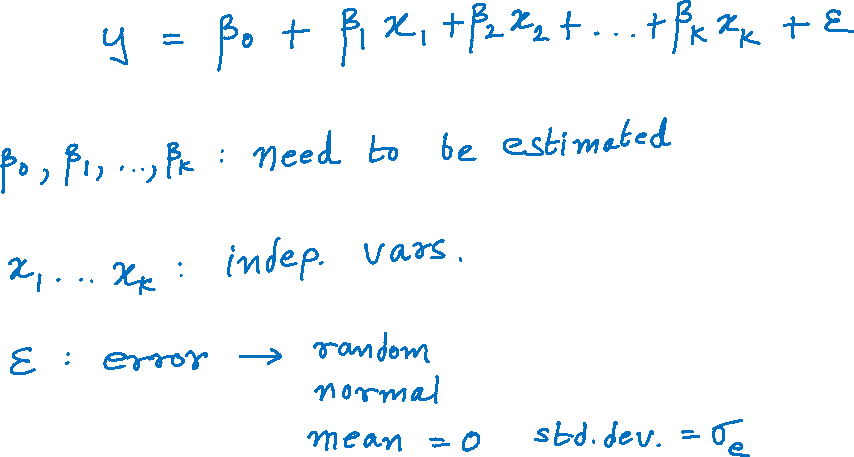 y = β₀ + β₁ x₁ + β₂ x₂ + ... + βₖ xₖ + ε
β₀, β₁, ..., βₖ : need to be estimated
x₁ ... xₖ : indep. vars.
ε : error → random
normal
mean = 0 std. dev. = σₑ